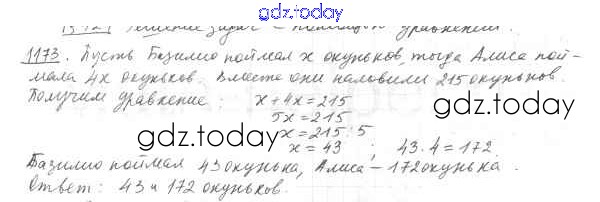 gdz.today
Решение задач с помощью уравнений.
1173. Пусть Базилио поймал x окуньков, тогда Алиса пой-
мала 4x окуньков. Вместе они наловили 215 окуньков.
Получим уравнение: x + 4x = 215
5x = 215
gdz.today gdz.today
x = 215 : 5
x = 43 ; 43 · 4 = 172.
Базилио поймал 43 окунька, Алиса – 172 окунька.
Ответ: 43 и 172 окуньков.
gdz.today